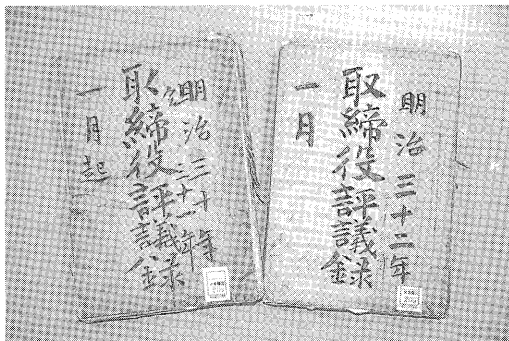 明治三十二年
取締役評議録
一月
明治三十年
三十一年
取締役評議録
一月起